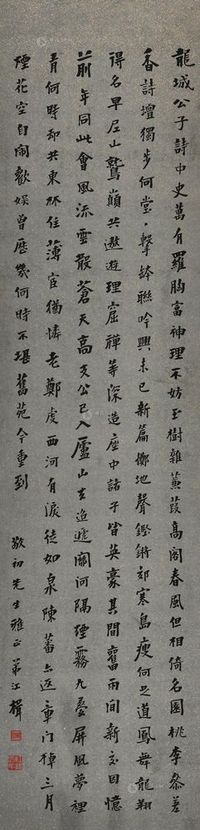 龍城公子詩中史萬有羅胸富神理不妨玉樹雜蒹葭高閣春風但相倚名園桃李參差
香詩壇獨步何堂〻擊鉢聯吟興未已新篇擲地聲鏗鏘郊寒島瘦何足道鳳舞龍翔
得名早尼山鷲巔共遨遊理窟禪等深造座中諸子皆英豪其間舊雨間新交回憶
前年同此會風流雲散蒼天高支公已入廬山去迢遞關河隔煙霧九疊屏風夢裡
青何時卻共東林住薄宦猶憐老鄭虔西河有淚徒如泉陳蕃亦返章門棹三月
煙花空自鬧歡娛曾歷幾何時不堪舊苑今重到
敬初先生雅正 弟江楫